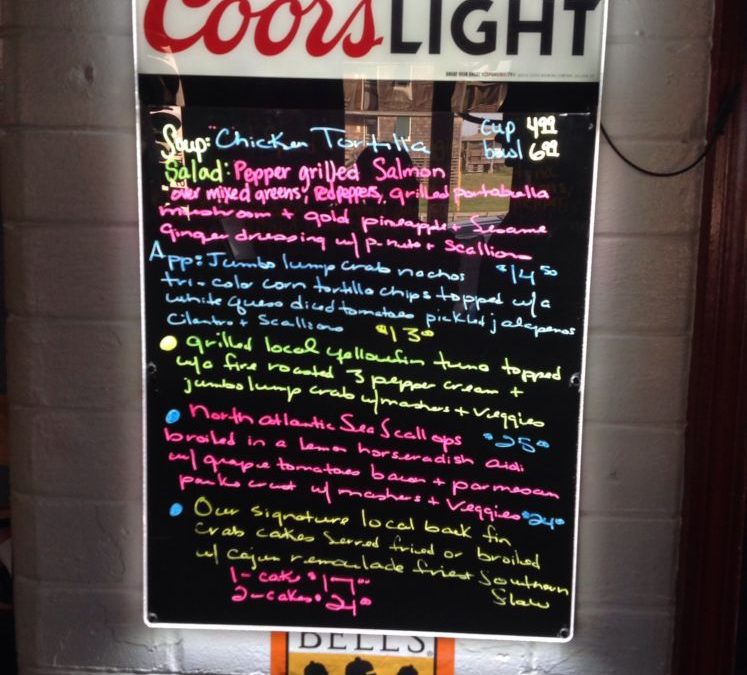 Coors LIGHT
Soup: Chicken Tortilla cup 4.00
bowl 6.00
Salad: Pepper grilled Salmon
over mixed greens, red peppers, grilled portabella
mushroom + gold pineapple Sesame
ginger dressing w/ + Scallions
App: Jumbo lump crab nachos $14.50
tri-color corn tortilla chips topped w/ a
white queso diced tomatoes pickled jalapenos
Cilantro + Scallions $13.0
grilled local yellowfin tuna topped
w/ a fire roasted 3 pepper cream +
jumbo lump crab w/ mashers + veggies
north atlantic Sea Scallops $25.0
broiled in a lemon horseradish
w/ grape tomatoes bacon + parmesan
panko crust w/ mashers + Veggies $24.0
Our signature local back fin
crab cakes Served fried or broiled
w/ Cajun remoulade + Southern
Slaw
1-cake $17
2-cakes $24
BELL'S